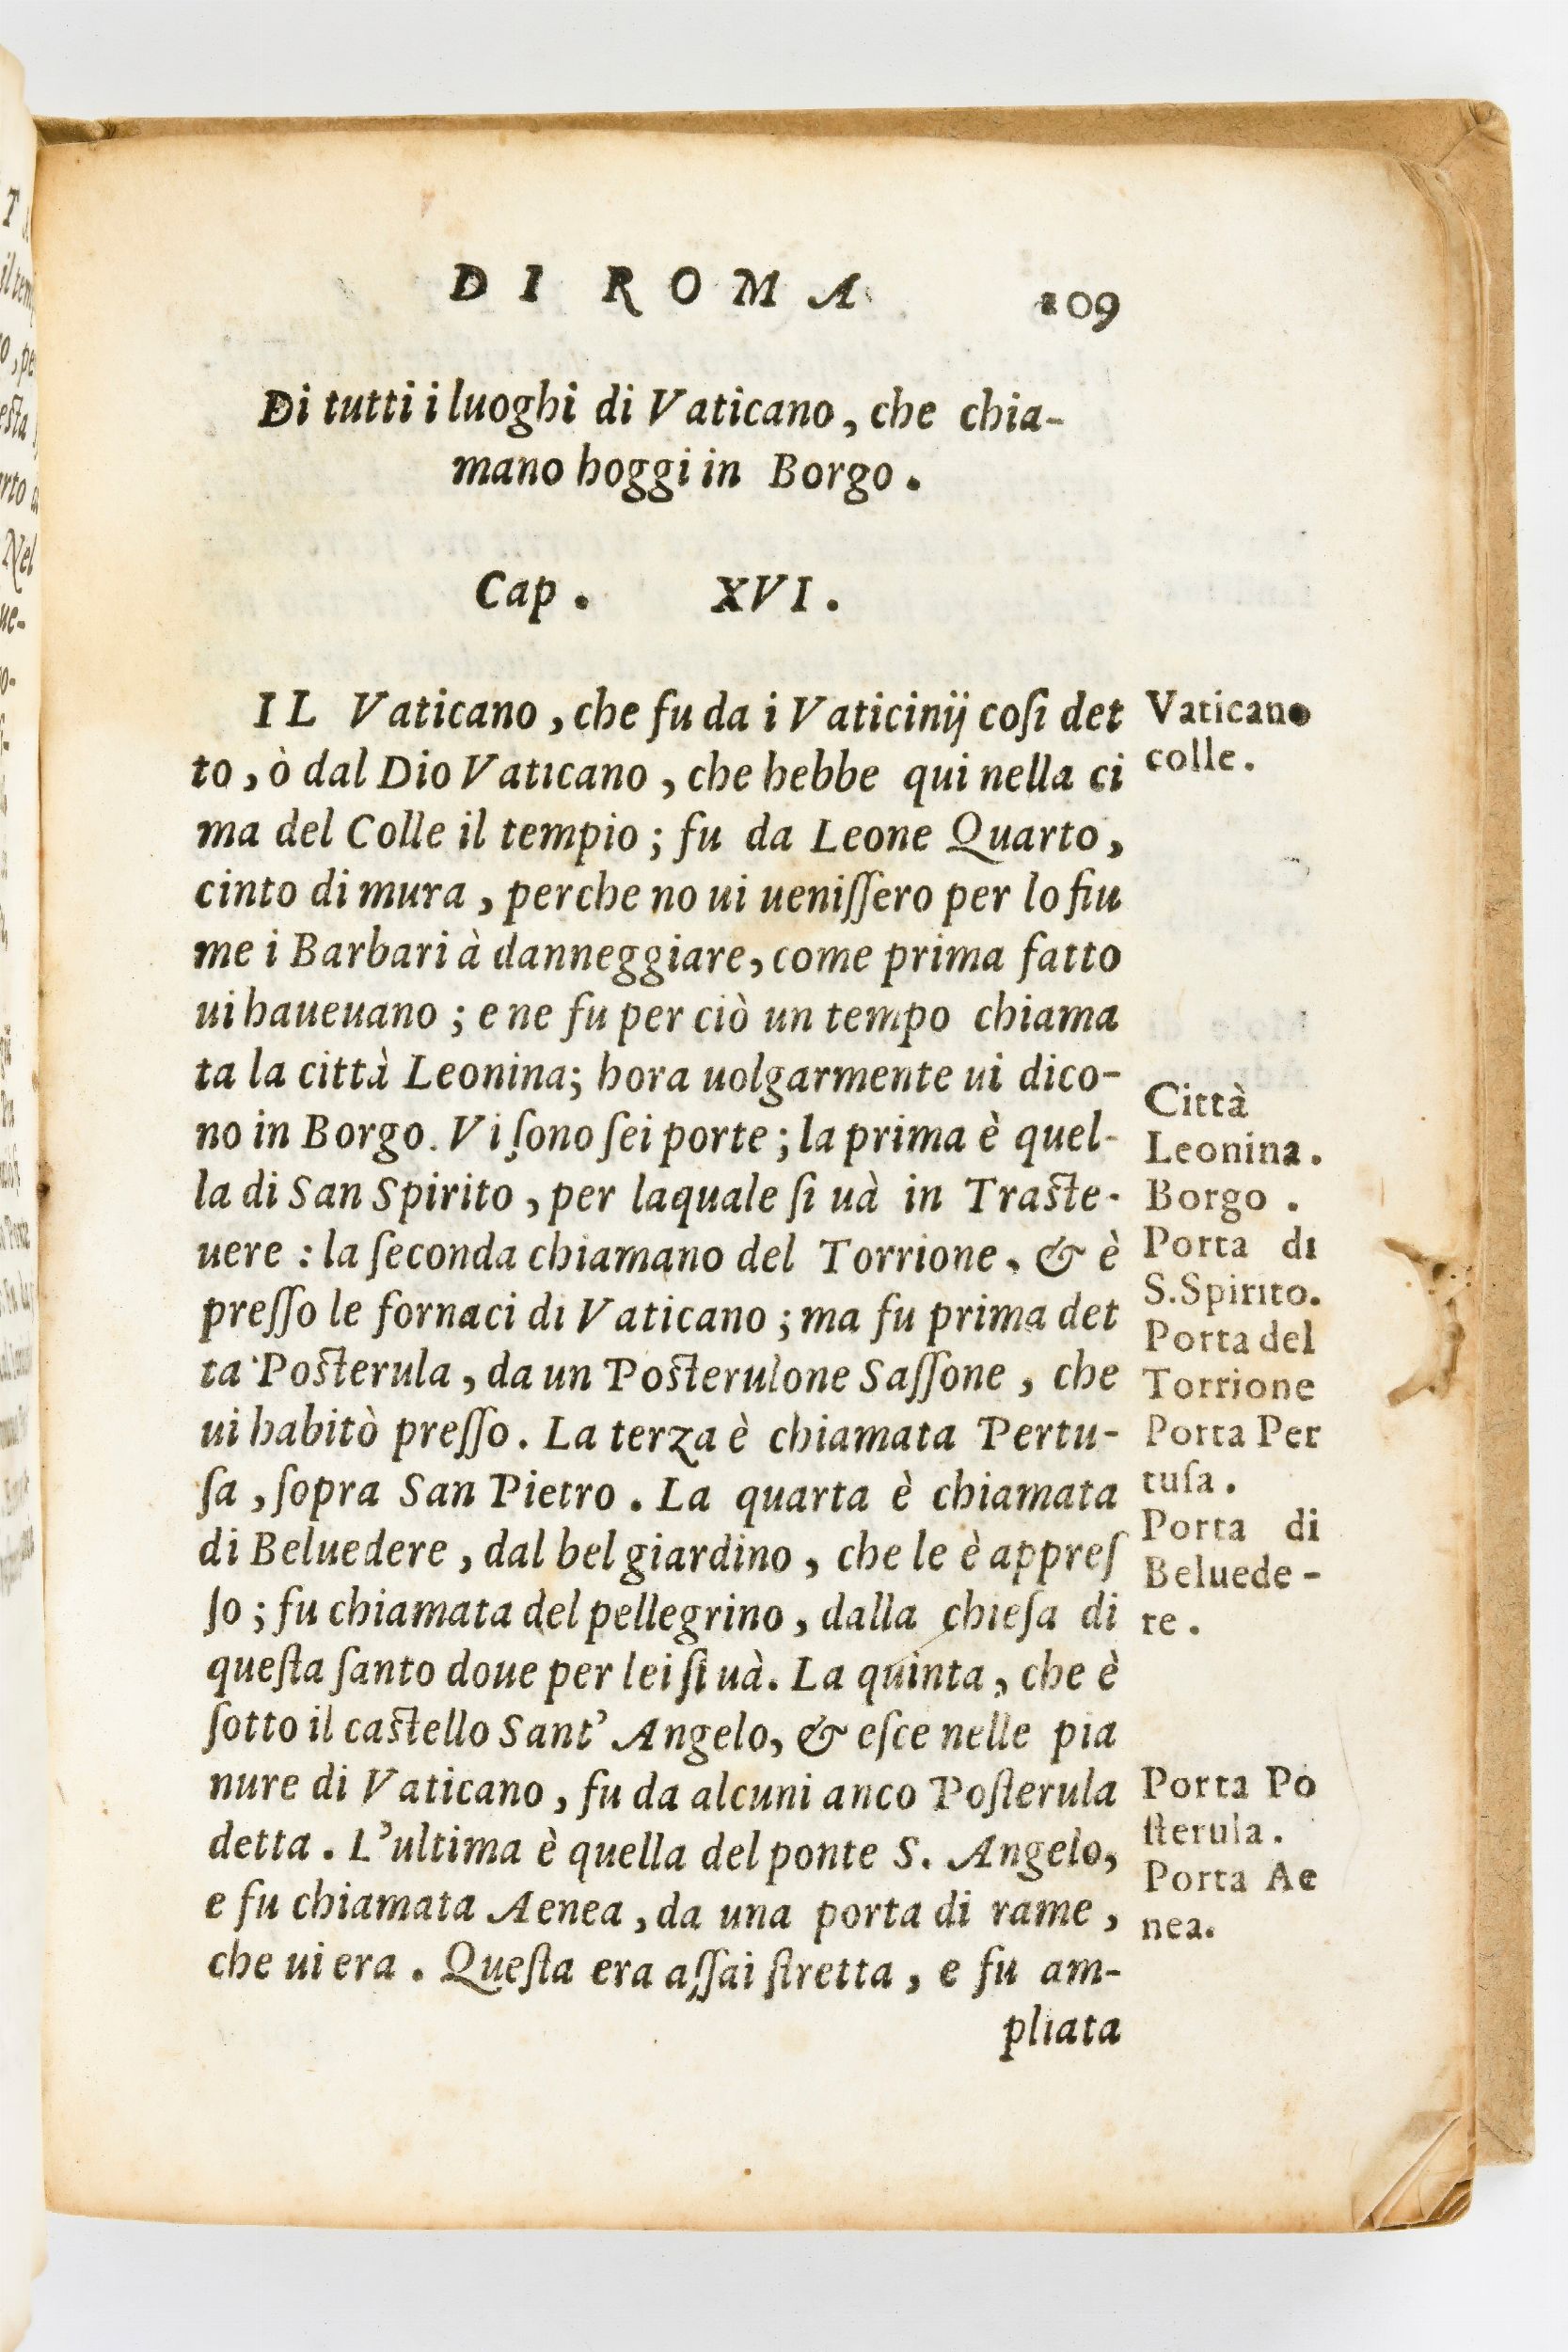 DI ROMA 109
Di tutti i luoghi di Vaticano, che chia-
mano hoggi in Borgo.
Cap. XVI.
IL Vaticano, che fu da i Vaticinij coſi det
to, ò dal Dio Vaticano, che hebbe qui nella ci
ma del Colle il tempio; fu da Leone Quarto,
cinto di mura, perche no ui ueniſſero per lo fiu
me i Barbari à danneggiare, come prima fatto
ui haueuano; e ne fu per ciò un tempo chiama
ta la città Leonina; hora uolgarmente ui dico-
no in Borgo. Vi ſono ſei porte; la prima è quel-
la di San Spirito, per laquale ſi uà in Traſte-
uere: la ſeconda chiamano del Torrione, & è
preſſo le fornaci di Vaticano; ma fu prima det
ta Poſterula, da un Poſterulone Saſſone, che
ui habitò preſſo. La terza è chiamata Pertu-
ſa, ſopra San Pietro. La quarta è chiamata
di Beluedere, dal bel giardino, che le è appreſ
ſo; fu chiamata del pellegrino, dalla chieſa di
queſta ſanto doue per lei ſi uà. La quinta, che è
ſotto il caſtello Sant' Angelo, & eſce nelle pia
nure di Vaticano, fu da alcuni anco Poſterula
detta. L'ultima è quella del ponte S. Angelo,
e fu chiamata Aenea, da una porta di rame,
che ui era. Queſta era aſſai ſtretta, e fu am-
pliata
Vaticano
colle.
Città
Leonina.
Borgo.
Porta di
S.Spirito.
Porta del
Torrione
Porta Per
tuſa.
Porta di
Beluede-
re.
Porta Po
ſterula.
Porta Ae
nea.